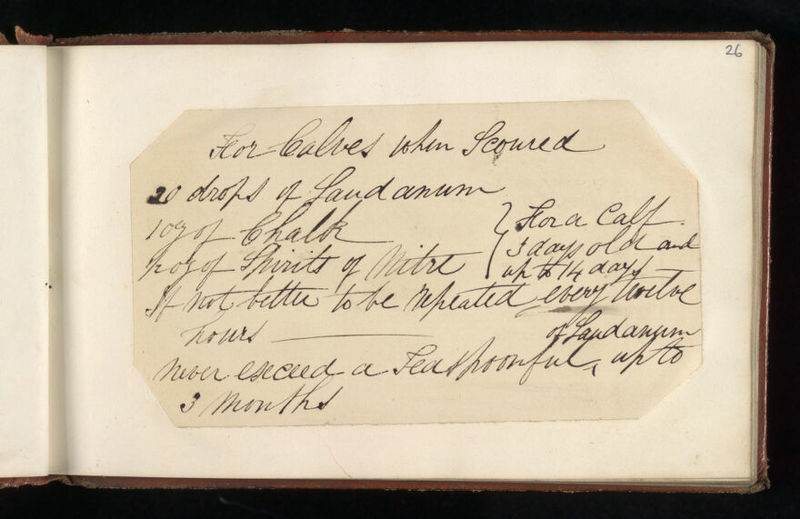 26
For Calves when Scoured
20 drops of Laudanum
1 oz of Chalk
oz of Spirits of Nitre
} For a Calf
3 days old and
up to 14 days
If not better to be repeated every twelve
hours
never exceed a Teaspoonful, of Laudanum up to
3 Months